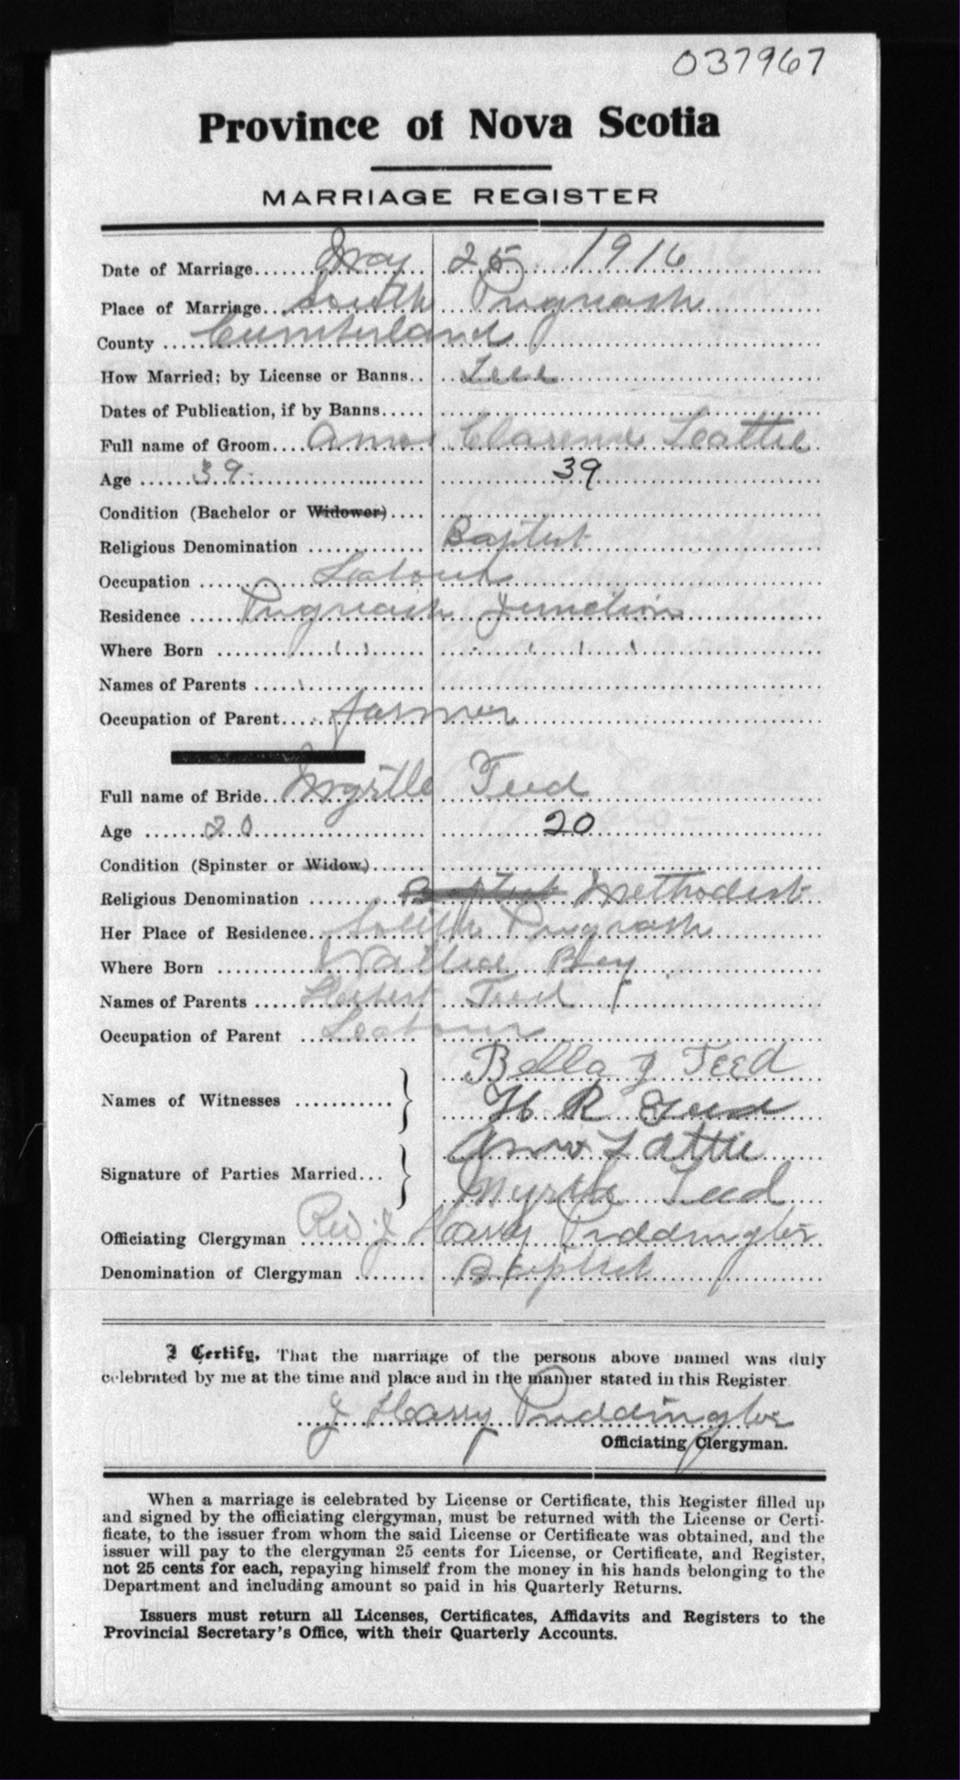 037967
Province of Nova Scotia
MARRIAGE REGISTER
Date of Marriage May 25 1916
Place of Marriage South Pugwash
County Cumberland
How Married; by License or Banns
Dates of Publication, if by Banns
Full name of Groom Amos Clarence Lattie
Age 39 39
Condition (Bachelor or Widower)
Religious Denomination Baptist
Occupation Labour
Residence Pugwash Junction
Where Born " "
Names of Parents
Occupation of Parent farmer
Full name of Bride Myrtle Teed
Age 20 20
Condition (Spinster or Widow)
Religious Denomination Baptist Methodist
Her Place of Residence South Pugwash
Where Born Wallace Bay
Names of Parents Herbert Teed
Occupation of Parent Labour
Bella J Teed
Names of Witnesses
H R Teed
Amos Lattie
Signature of Parties Married
Myrtle Teed
Officiating Clergyman Rev. J Harry Puddington
Denomination of Clergyman Baptist
I Certify, That the marriage of the persons above named was duly
celebrated by me at the time and place and in the manner stated in this Register
J Harry Puddington
Officiating Clergyman.
When a marriage is celebrated by License or Certificate, this Register filled up
and signed by the officiating clergyman, must be returned with the License or Certi-
ficate, to the issuer from whom the said License or Certificate was obtained, and the
issuer will pay to the clergyman 25 cents for License, or Certificate, and Register,
not 25 cents for each, repaying himself from the money in his hands belonging to the
Department and including amount so paid in his Quarterly Returns.
Issuers must return all Licenses, Certificates, Affidavits and Registers to the
Provincial Secretary's Office, with their Quarterly Accounts.